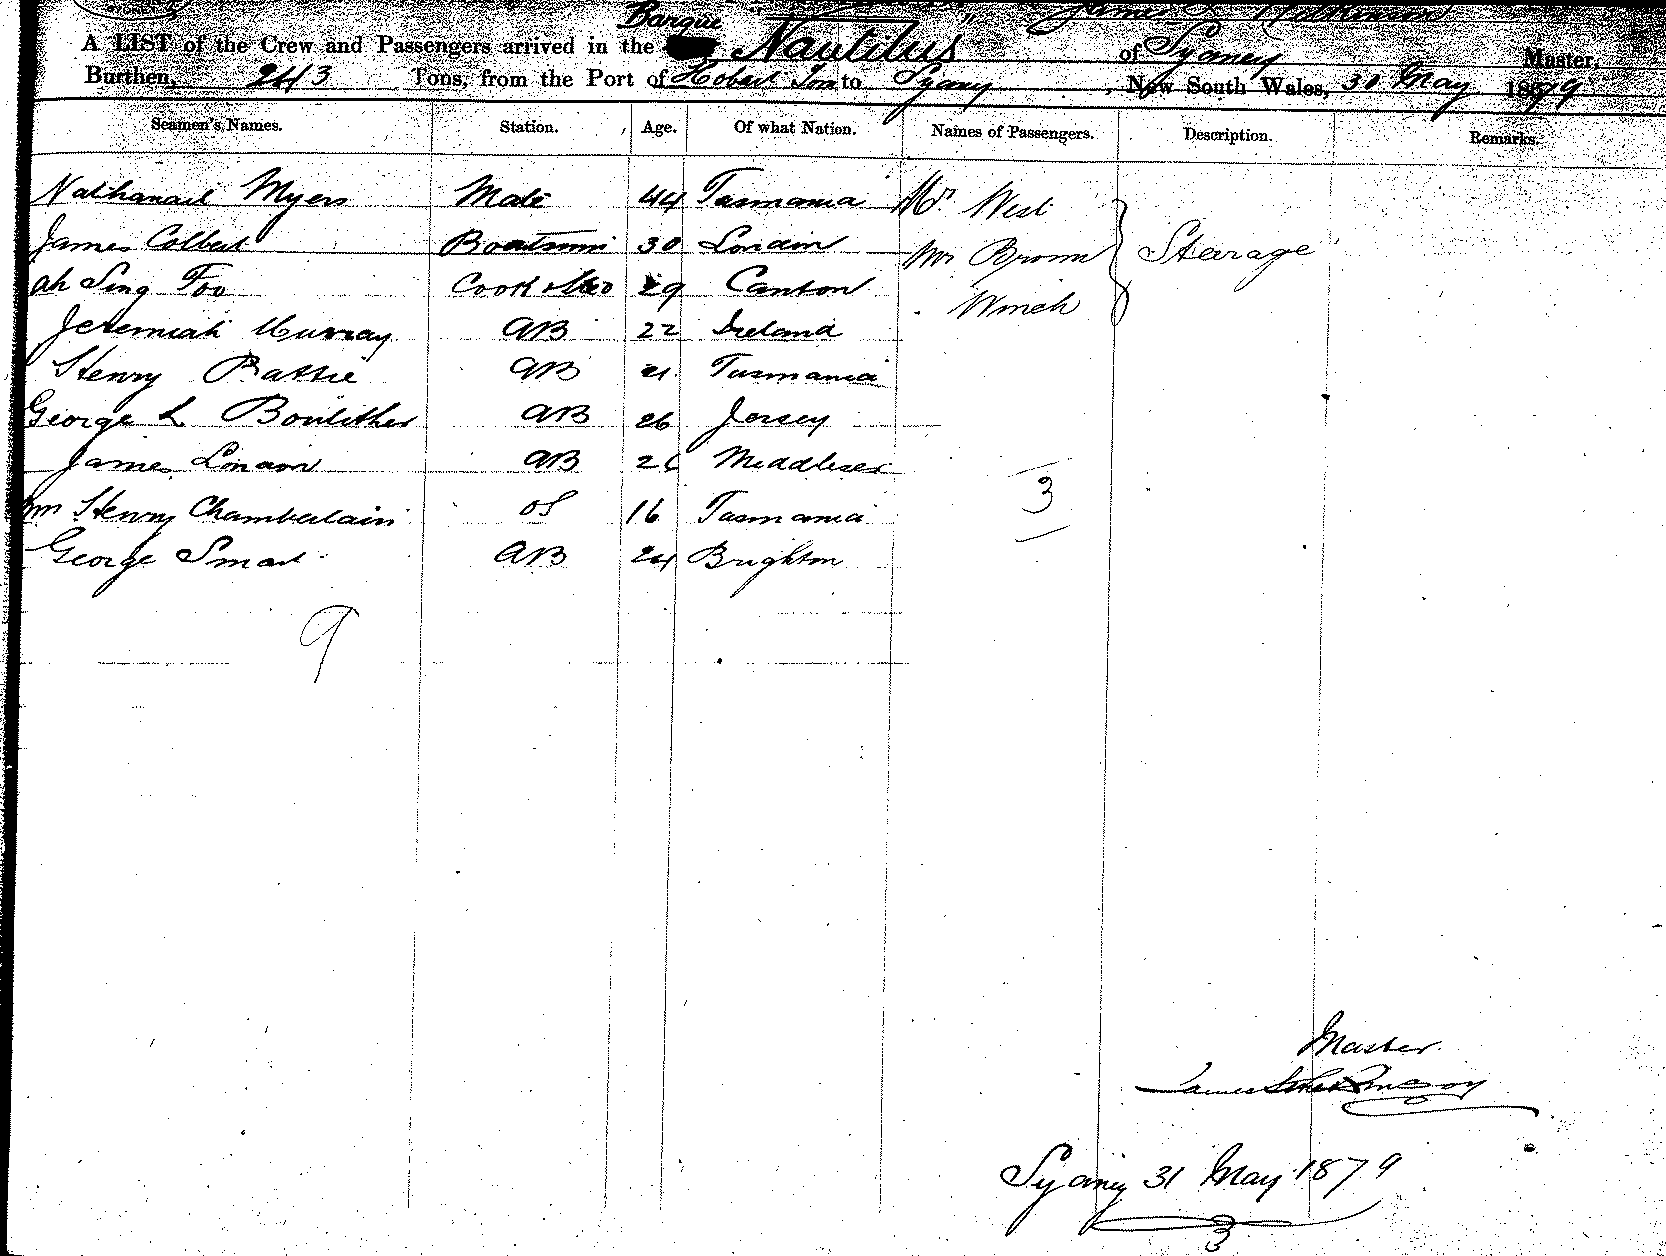 Barque " "
A LIST of the Crew and Passengers arrived in the Nautilus of Sydney Master,
Burthen, 243 Tons, from the Port of Hobart Ton to Sydney, New South Wales, 30 May 1879
Seamen's Names. Station. Age. Of what Nation. Names of Passengers. Description. Remarks.
Nathanail Myers Mate 44 Tasmania Mr West
James Colbert Boatswain 30 London Mr Brown Stearage
Ah Sing Foo Cook & 29 Canton Winch
Jeremiah Murray AB 22 Ireland
Henry Battie AB 21 Tasmania
George L AB 26 Jersey
James London AB 26 Middlesex
Wm Henry Chamberlain OS 16 Tasmania
3
George Smart AB 24 Brighton
9
Master
James
Sydney 31 May 1879
3